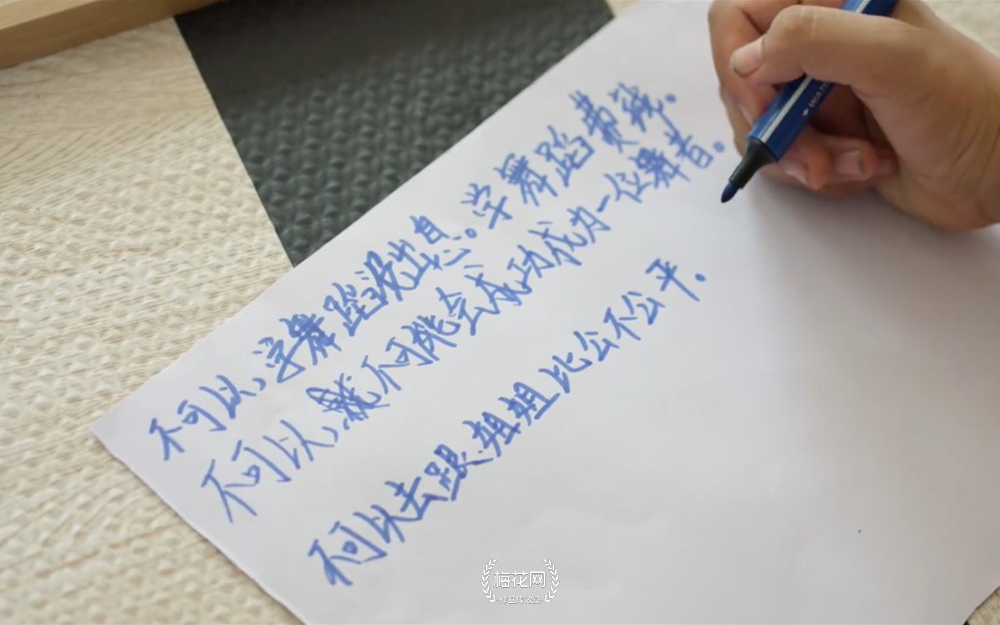 不可以，学舞蹈没出息。学舞蹈费钱。
不可以，就不可能会成功成为一位舞者。
不可以去跟姐姐比公不公平．
梅花网